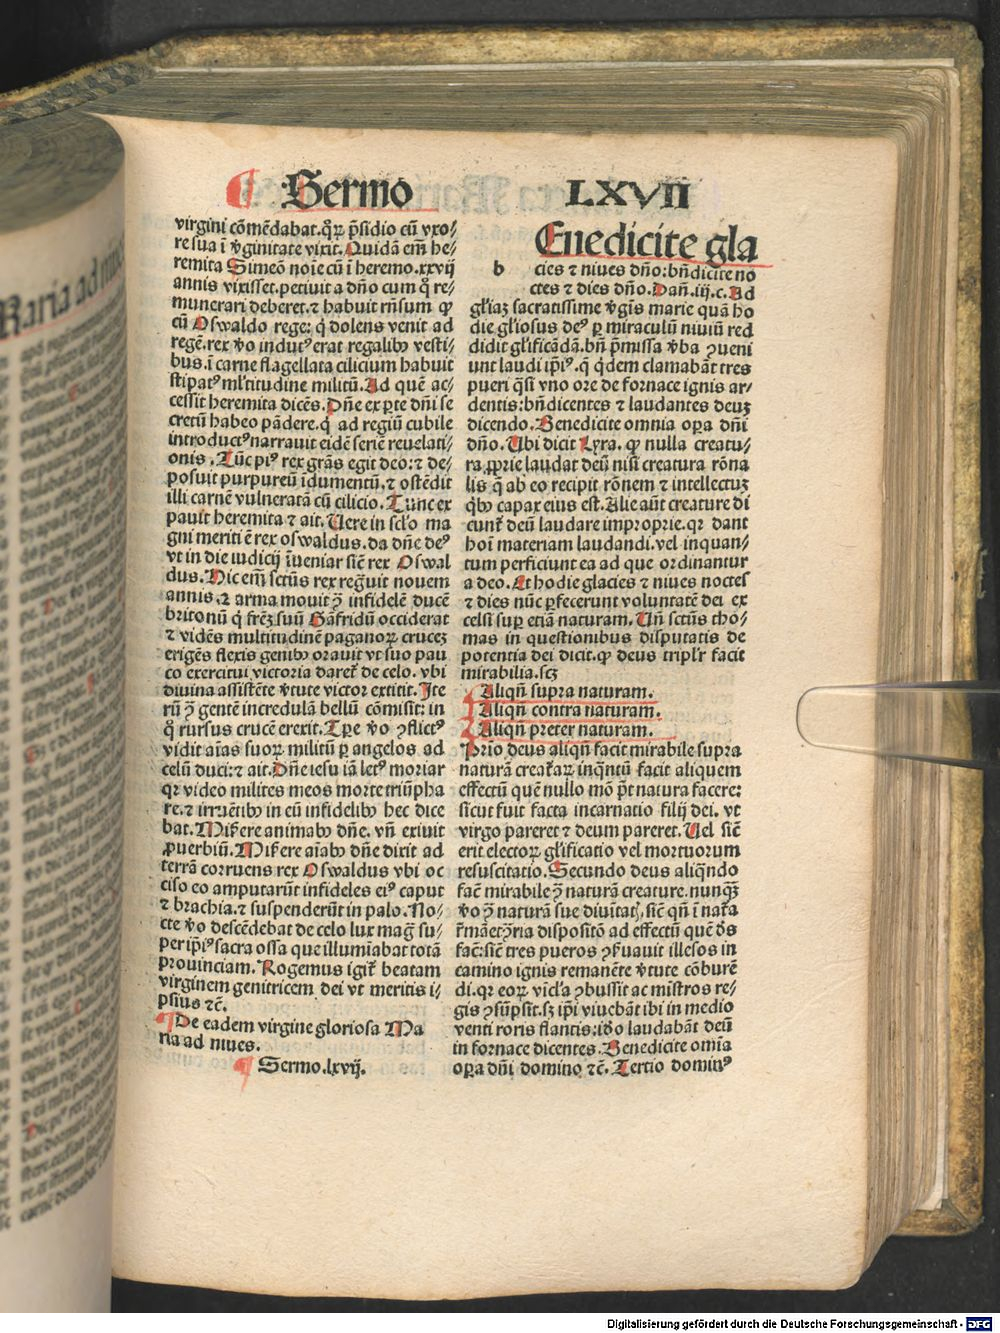 Sermo LXVII
virgini cõmẽdabat. qͦꝝ p̃sidio cũ vxo⸗
re sua ĩ ꝟginitate vixit. Quidã em̃ he⸗
remita Simeõ noĩe cũ ĩ heremo. xxvij
annis vixisset. petiuit a dño cum q̃ re⸗
munerari deberet. ⁊ habuit rñsum ꝙ
cũ Oswaldo rege: q̃ dolens venit ad
regẽ. rex ꝟo indutꝰ erat regalibꝫ vesti⸗
bus. ĩ carne flagellata cilicium habuit
stipatꝰ ml̃titudine militũ. Ad quẽ ac⸗
cessit heremita dicẽs. Dñe ex ꝑte dñi se
cretũ habeo pãdere. q̃ ad regiũ cubile
introductꝰ narrauit eidẽ seriẽ reuelati⸗
onis. Tũc piꝰ rex grãs egit deo: ⁊ de⸗
posuit purpureũ ĩdumentũ. ⁊ ostẽdit
illi carnẽ vulneratã cũ cilicio. Tunc ex
pauit heremita ⁊ ait. Uere in scl̃o ma
gni meriti ẽ rex oswaldus. da dñe deꝰ
vt in die iudicij ĩueniar sic̃ rex Oswal
dus. Hic em̃ sctũs rex reg̃uit nouem
annis. ⁊ arma mouit ꝯ̃ infidelẽ ducẽ
britonũ q̃ fr̃eꝫ suũ Gãfridũ occiderat
⁊ vidẽs multitudinẽ paganoꝝ cruceꝫ
erigẽs flexis genibꝫ orauit vt suo pau
co exercitui victoria daret̃ de celo. vbi
diuina assistẽte ꝟtute victor extitit. Ite
rũ ꝯ̃ gentẽ incredulã bellũ cõmisit: in
q̊ rursus crucẽ erexit. Tꝑe ꝟo ꝯflictꝰ
vidit aĩas suoꝝ militũ ꝑ angelos ad
celũ duci: ⁊ ait. Dñe iesu iã letꝰ moriar
qꝛ video milites meos morte triũpha
re. ⁊ irruẽtibꝫ in eũ infidelibꝫ hec dice
bat. Miẞere animabꝫ dñe. vñ exiuit
ꝓuerbiũ. Miẞere aĩabꝫ dñe dixit ad
terrã corruens rex Oswaldus vbi oc
ciso eo amputarũt infideles eiꝰ caput
⁊ brachia. ⁊ suspenderũt in palo. No⸗
cte ꝟo descẽdebat de celo lux mag̃ su⸗
per ip̃iꝰ sacra ossa que illumĩabat totã
prouinciam. Rogemus igit̃ beatam
virginem genitricem dei vt meritis i⸗
psius ⁊c̃.
De eadem virgine gloriosa Ma
ria ad niues.
Sermo. lxvij.
b Enedicite gla
cies ⁊ niues dño: bñdicite no
ctes ⁊ dies dño. Dañ. iij. c. Ad
gl̃iaꝫ sacratissime ꝟgĩs marie quã ho
die gl̃iosus deꝰ ꝑ miraculũ niuiũ red
didit gl̃ificãdã. bñ p̃missa ꝟba ꝯueni
unt laudi ip̃iꝰ. q̃ q̃dem clamabãt tres
pueri q̃si vno ore de fornace ignis ar⸗
dentis: bñdicentes ⁊ laudantes deuꝫ
dicendo. Benedicite omnia oꝑa dñi
dño. Ubi dicit Lyra. ꝙ nulla creatu⸗
ra ꝓprie laudat deũ nisi creatura rõna
lis q̃ ab eo recipit rõnem ⁊ intellectuꝫ
q̃bꝫ capax eius est. Alie aũt creature di
cunt̃ deũ laudare improprie. qꝛ dant
hoĩ materiam laudandi. vel inquan⸗
tum perficiunt ea ad que ordinantur
a deo. Et hodie glacies ⁊ niues noctes
⁊ dies nũc ꝑfecerunt voluntatẽ dei ex
celsi suꝑ etiã naturam. Uñ sctũs tho⸗
mas in questionibus disputatis de
potentia dei dicit. ꝙ deus tripl̃r facit
mirabilia. scꝫ
Aliqñ supra naturam.
Aliqñ contra naturam.
Aliqñ preter naturam.
Prĩo deus aliqñ facit mirabile supra
naturã creat̃aꝝ inq̃ntũ facit aliquem
effectũ quẽ nullo mõ p̃t natura facere:
sicut fuit facta incarnatio filij dei. vt
virgo pareret ⁊ deum pareret. Uel sic̃
erit electoꝝ gl̃ificatio vel mortuorum
resuscitatio. Secundo deus aliq̃ndo
fac̃ mirabile ꝯ̃ naturã creature. nunqꝫ̃
ꝟo ꝯ̃ naturã sue diuĩtatꝭ. sic̃ qñ ĩ nat̃a
r̃mãet ꝯ̃ria dispositõ ad effectũ quẽ ds̃
fac̃: sic̃ tres pueros ꝯẞuauit illesos in
camino ignis remanẽte ꝟtute cõburẽ
di. qꝛ eoꝝ vĩcl̃a ꝯbussit ac mĩstros re⸗
gis ꝯsũpsit. sꝫ ip̃i viuebãt ibi in medio
venti roris flantis: iõo laudabãt deũ
in fornace dicentes. Benedicite om̃ia
oꝑa dñi domino ⁊c̃. Tertio dominꝰ
Digitalisierung gefördert durch die Deutsche Forschungsgemeinschaft - DFG